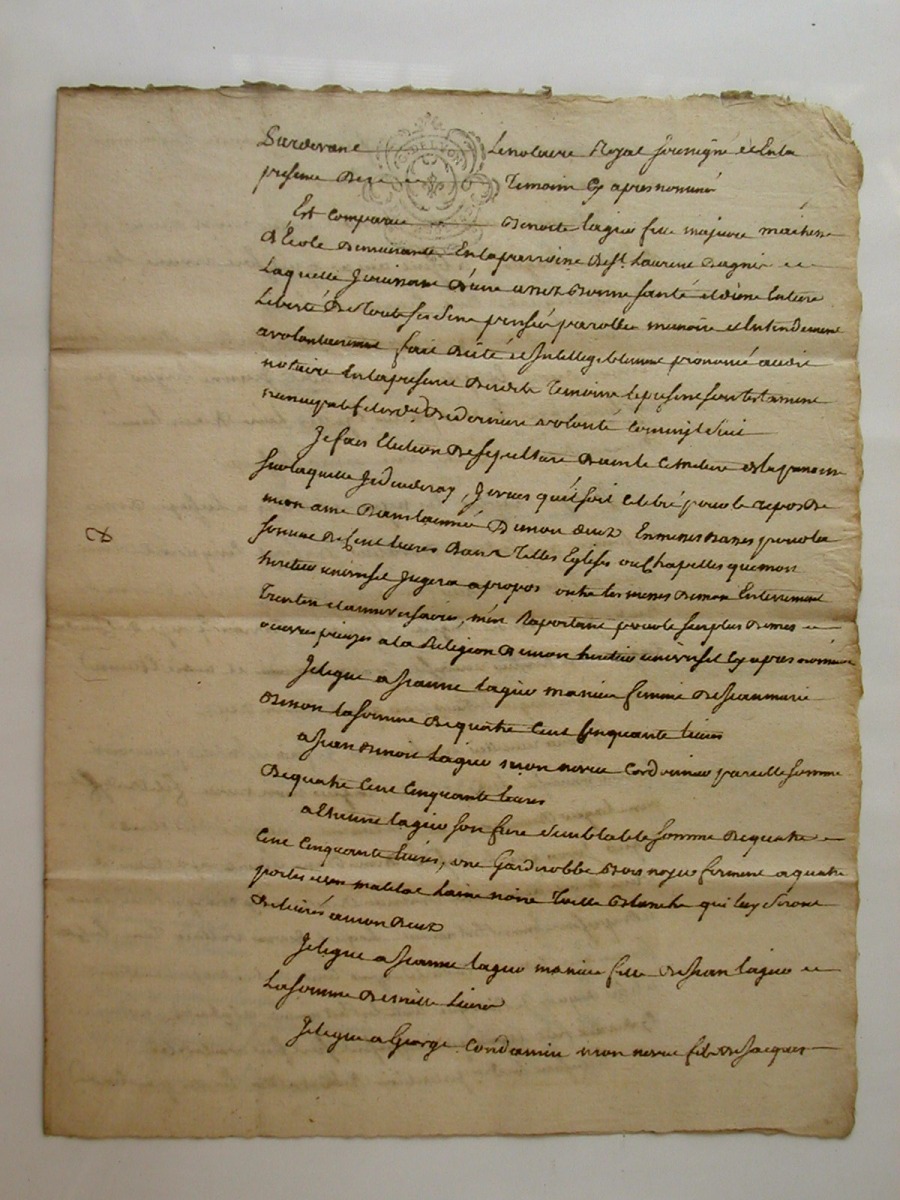 Pardevant Le notaire Royal soussigné et En la
presence De temoins Cy apres nommés
Est comparue Benoite lagier fille majeure maitresse
D'École Demeurante En la parroisse De st. Laurent D'agnie
Laquelle Jouissante D'une assez Bonne santé et D'une Entiere
Liberté De toutte ses sens pensée parolle memoire et Entendement
a volontairement fait Dicté et Intelligiblement prononcé audit
notaire En la presence Desdits temoins le present son testament
nuncupatif De Derniere volonté Comme s'ensuit
Je fais Election De sepulture Dans le Cimetiere De la parroisse
sur laquelle Je Decederay, Je veux qu'il soit Celebré pour le repos De
mon ame Dans l'année De mon deux En messes Basses pour la
somme De Cent livres Dans telles Eglises ou Chapelles que mon
heritier universel Jugera apropos outre les messes De mon Enterrement
trentein et anniversaire, m'en Raportant pour le surplus De mes
œuvres pieuses a la Religion De mon heritier universel Cy apres nommé
Je legue a Jeanne lagier ma niece femme De Jean marie
Benson la somme De quatre Cent Cinquante livres
a Jean Benoit lagier mon neveu Cordonnier pareille somme
De quatre Cent Cinquante livres
a Etienne lagier son frere semblable somme De quatre
Cent Cinquante livres, une Garderobbe Bois noyer fermant a quatre
portes et un matelat laine noire toille Blanche qui luy seront
Delivrés a mon Deux
Je legue a Jeanne lagier ma niece fille De Jean lagier
La somme De mille livres
Je legue a George Condamin mon neveu fils De Jacques